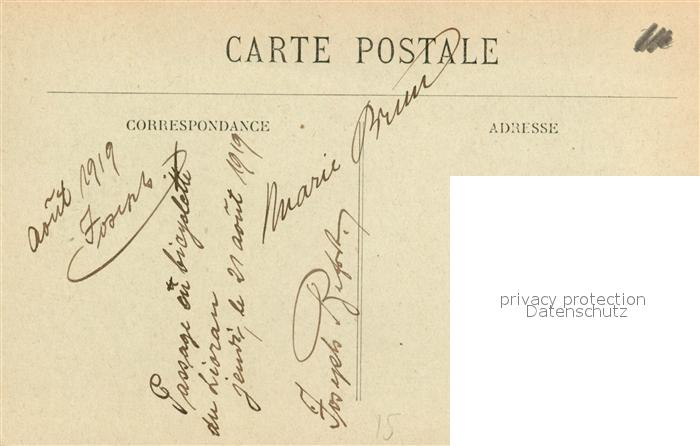 CARTE POSTALE
CORRESPONDANCE
ADRESSE
août 1919
Joseph
Passage en bicyclette
du Lioran
jeudi, le 21 août 1919
Marie Brun
Joseph
privacy protection
Datenschutz
15